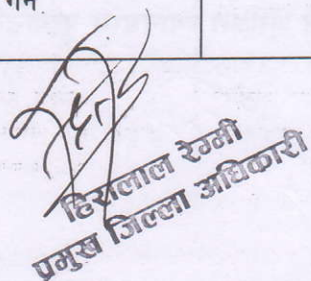 गर्न
हिरालाल रेग्मी
प्रमुख जिल्ला अधिकारी